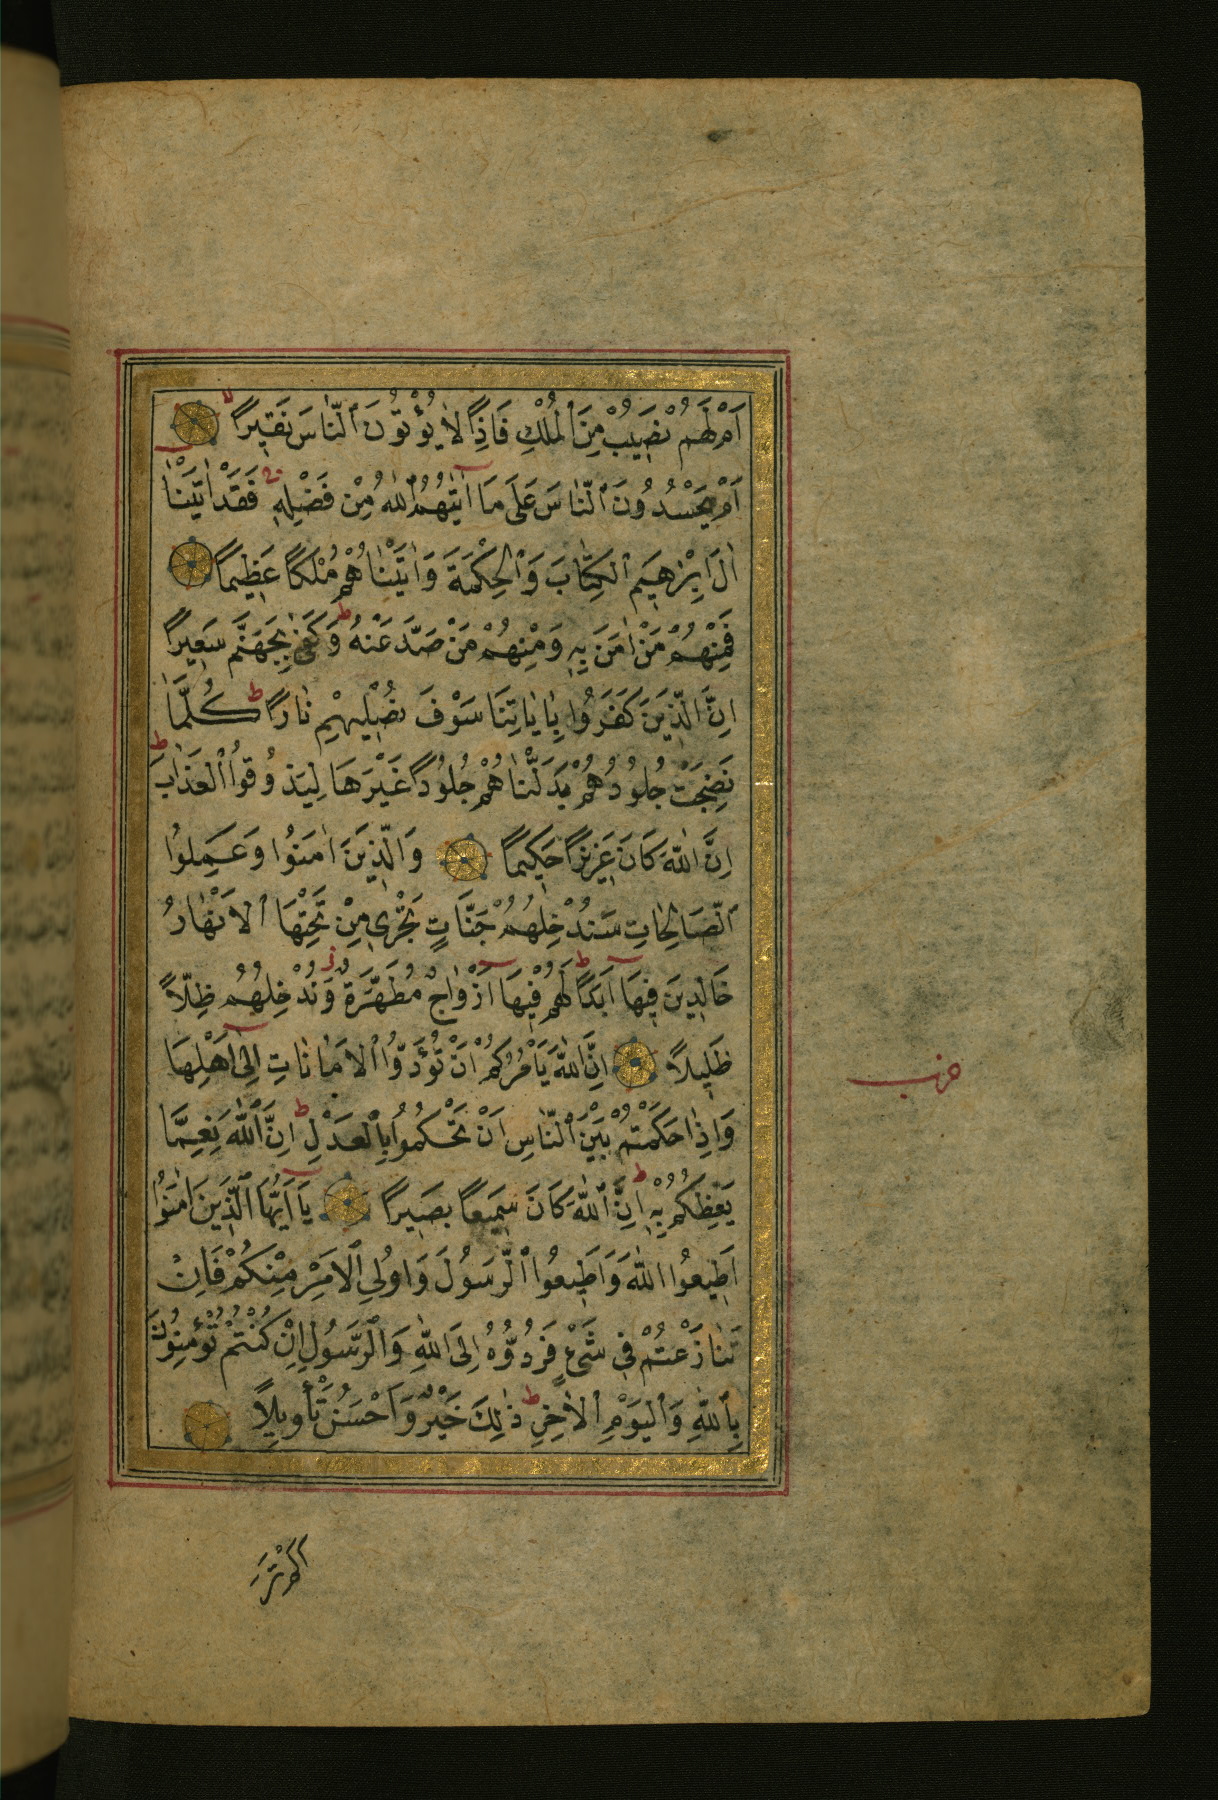 اَمْ لَهُمْ نَصِيبٌ مِنَ ٱلْمُلْكِ فَاِذًا لَا يُؤْتُونَ ٱلنَّاسَ نَقِيرًا
اَمْ يَحْسُدُونَ ٱلنَّاسَ عَلٰى مَا اٰتٰيهُمُ ٱللّٰهُ مِنْ فَضْلِهِ فَقَدْ اٰتَيْنَا
اٰلَ اِبْرٰهِيمَ ٱلْكِتَابَ وَٱلْحِكْمَةَ وَاٰتَيْنَاهُمْ مُلْكًا عَظِيمًا
فَمِنْهُمْ مَنْ اٰمَنَ بِهِ وَمِنْهُمْ مَنْ صَدَّ عَنْهُ ط وَكَفٰى بِجَهَنَّمَ سَعِيرًا
اِنَّ الَّذِينَ كَفَرُوا بِاٰيَاتِنَا سَوْفَ نُصْلِيهِمْ نَارًا ط كُلَّمَا
نَضِجَتْ جُلُودُهُمْ بَدَّلْنَاهُمْ جُلُودًا غَيْرَهَا لِيَذُوقُوا ٱلْعَذَابَ ط
اِنَّ اللّٰهَ كَانَ عَزِيزًا حَكِيمًا وَالَّذِينَ اٰمَنُوا وَعَمِلُوا
ٱلصَّالِحَاتِ سَنُدْخِلُهُمْ جَنَّاتٍ تَجْرِى مِنْ تَحْتِهَا ٱلْاَنْهَارُ
خَالِدِينَ فِيهَا اَبَدًا ط لَهُمْ فِيهَا اَزْوَاجٌ مُطَهَّرَةٌ ز وَنُدْخِلُهُمْ ظِلًّا
ظَلِيلًا اِنَّ اللّٰهَ يَاْمُرُكُمْ اَنْ تُؤَدُّوا ٱلْاَمَانَاتِ اِلٰى اَهْلِهَا
وَاِذَا حَكَمْتُمْ بَيْنَ ٱلنَّاسِ اَنْ تَحْكُمُوا بِالْعَدْلِ ط اِنَّ ٱللّٰهَ نِعِمَّا
يَعِظُكُمْ بِهِ ط اِنَّ ٱللّٰهَ كَانَ سَمِيعًا بَصِيرًا يَا اَيُّهَا ٱلَّذِينَ اٰمَنُوا
اَطِيعُوا اللّٰهَ وَاَطِيعُوا ٱلرَّسُولَ وَاُولِي ٱلْاَمْرِ مِنْكُمْ فَاِنْ
تَنَازَعْتُمْ فِي شَيْءٍ فَرُدُّوهُ اِلَى اللّٰهِ وَٱلرَّسُولِ اِنْ كُنْتُمْ تُؤْمِنُونَ
بِٱللّٰهِ وَٱلْيَوْمِ ٱلْاٰخِرِ ط ذٰلِكَ خَيْرٌ وَاَحْسَنُ تَأْوِيلًا
حزب
اَلَمْ تَرَ